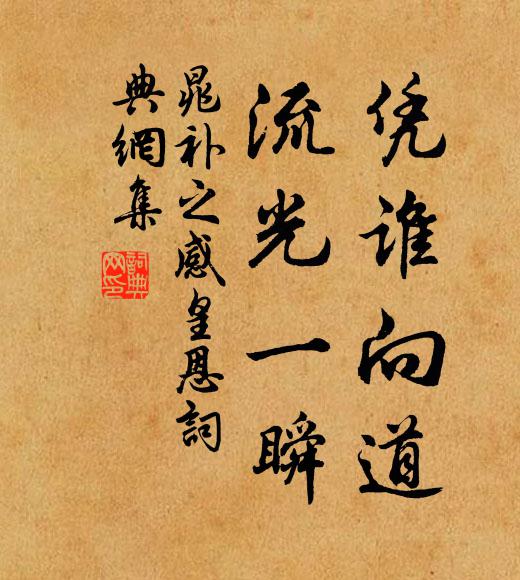 凭谁向道
流光一瞬
晁补之感皇恩词
典網集
詞典
网印